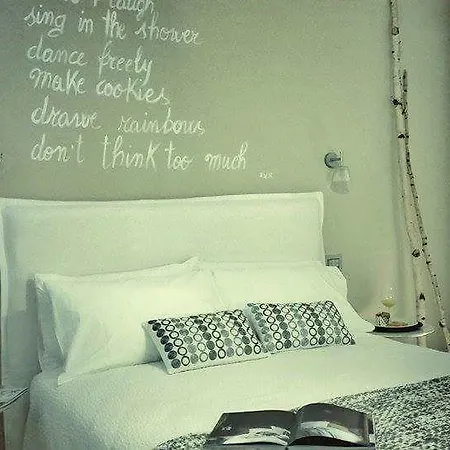 laugh
sing in the shower
dance freely
make cookies
drawe rainbows
don't think too much